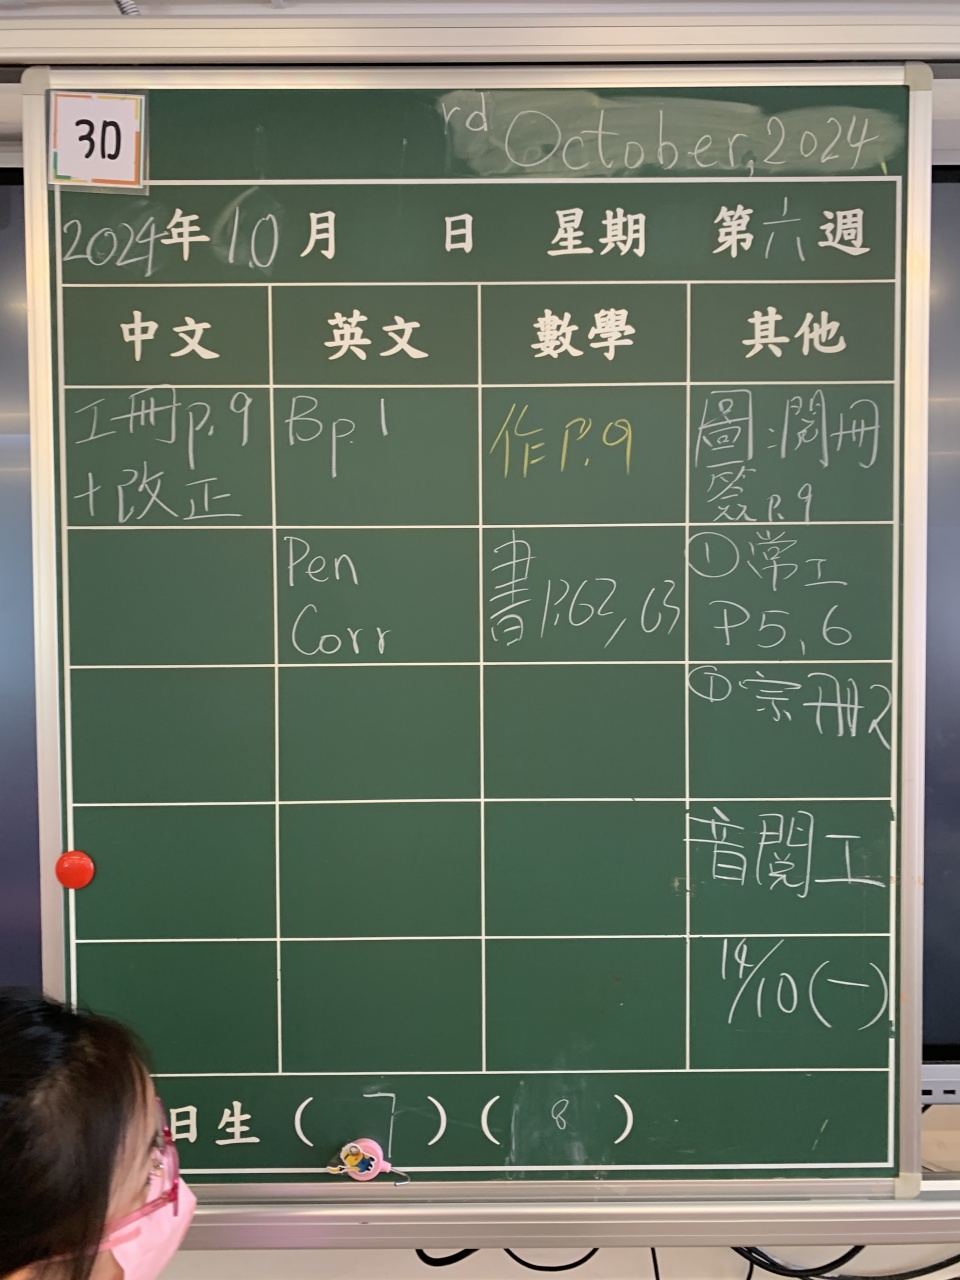 3D
rd October, 2024
2024年10月 日 星期 第六週
中文 英文 數學 其他
工冊p.9
+改正
Bp.1
作P.9
圖:閱冊
簽P.9
Pen
Corr
書P.62,63
①常工
P5,6
宗冊2
音閱工
14/10(一)
日生(7)(8)